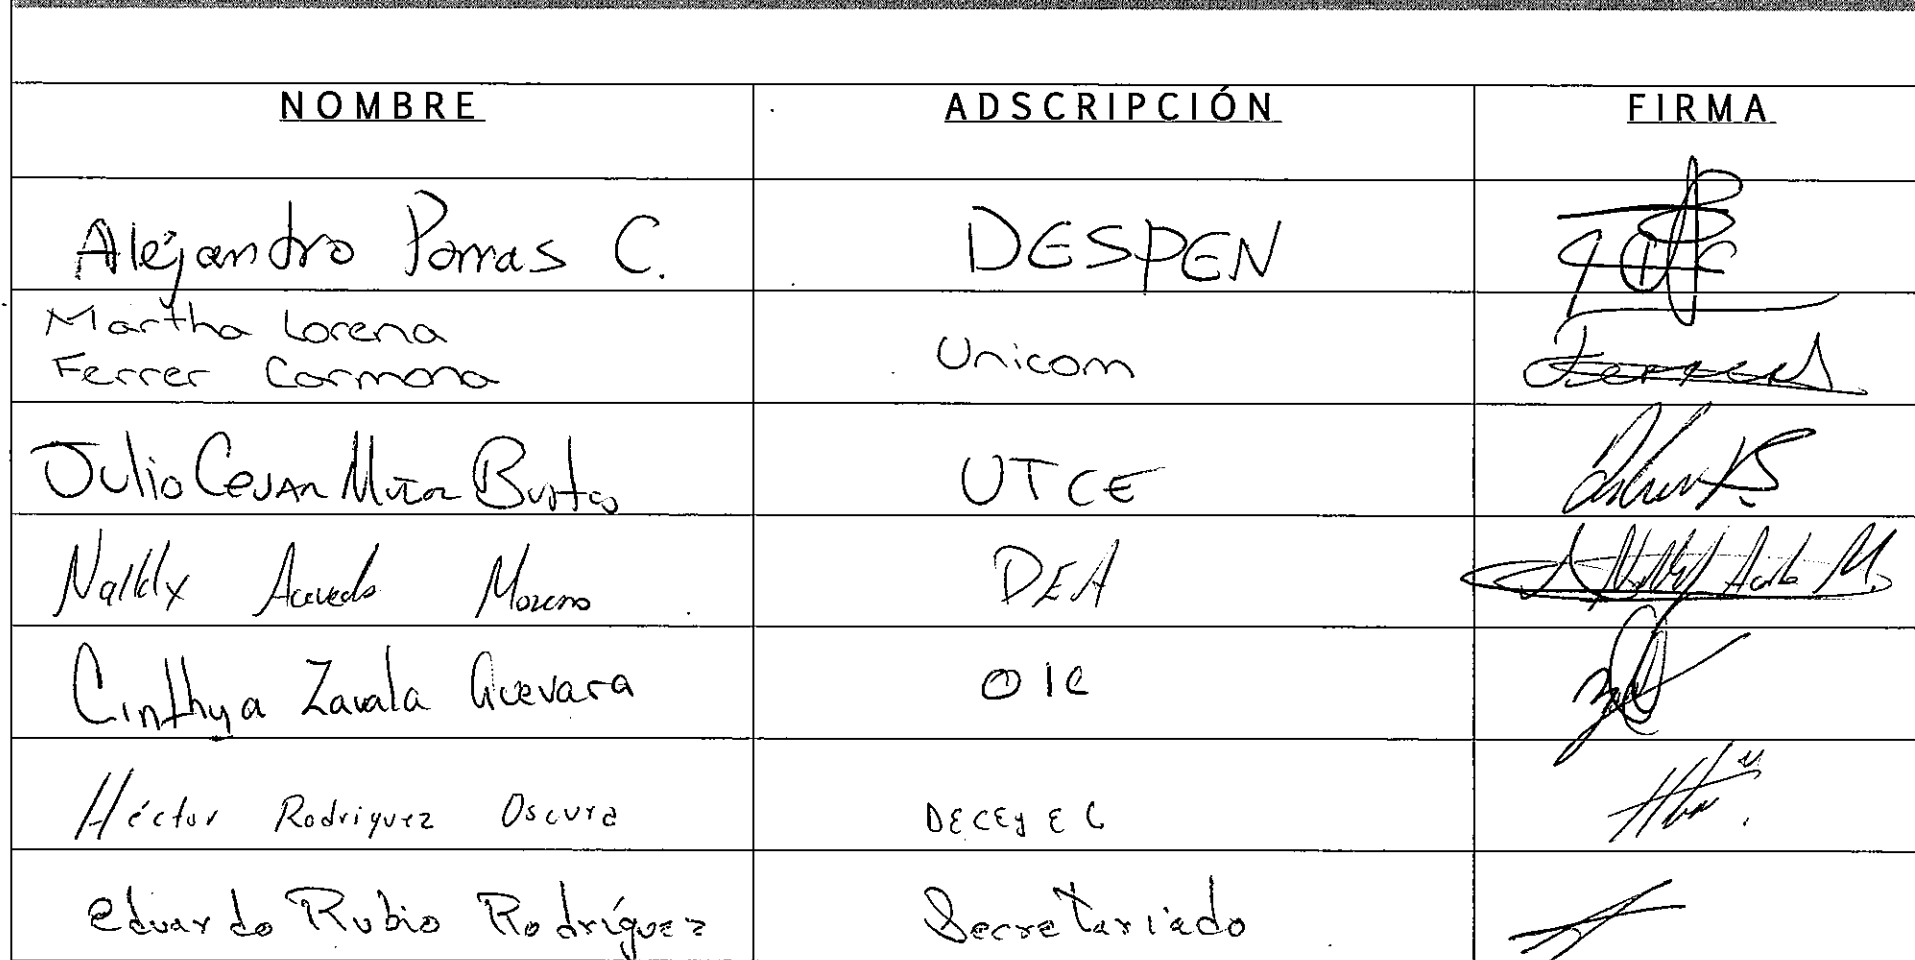 NOMBRE ADSCRIPCIÓN FIRMA
Alejandro Porras C. DESPEN
Martha Lorena
Ferrer Carmona Unicom
Julio Cesar Bustos UTCE
Acevedo Moreno DEA
Cinthya Zavala Guevara OIC
Héctor Rodriguez Oscura DECEyEC
Eduardo Rubio Rodríguez Secretariado